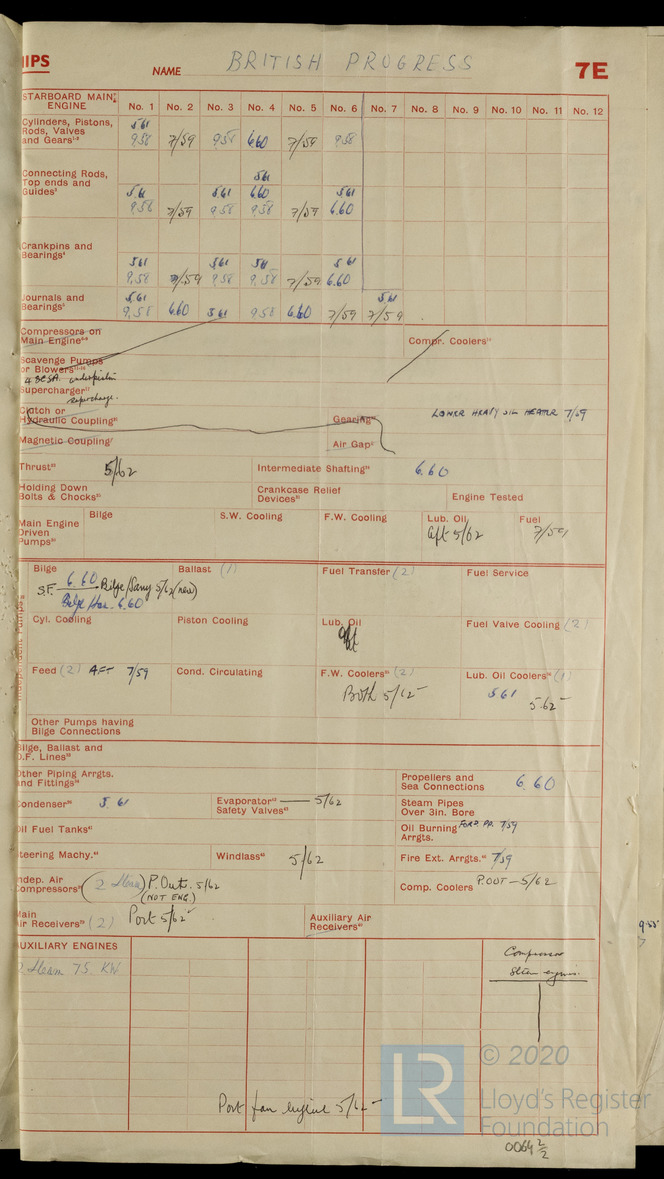 IPS
NAME BRITISH PROGRESS
7E
STARBOARD MAIN ENGINE No. 1 No. 2 No. 3 No. 4 No. 5 No. 6 No. 7 No. 8 No. 9 No. 10 No. 11 No. 12
Cylinders, Pistons, 5.61
Rods, Valves
and Gears 9.58 7/59 9.58 6.60 7/59 9.58
Connecting Rods, 5.61
Top ends and 5.61 5.61 6.60 5.61
Guides 9.58 7/59 9.58 9.58 7/59 6.60
Crankpins and
Bearings 5.61 5.61 5.61 5.61
9.58 7/59 9.58 9.58 7/59 6.60
Journals and 5.61 5.61
Bearings 9.58 6.60 5.61 9.58 6.60 7/59 7/59
Compressors on
Main Engine
Compr. Coolers
Scavenge Pumps
or Blowers
Supercharger
Clutch or
Hydraulic Coupling
Gearing
LOWER HEAVY OIL HEATER 7/59
Magnetic Coupling
Air Gap
Thrust 5/62 Intermediate Shafting 6.60
Holding Down
Bolts & Chocks
Crankcase Relief
Devices
Engine Tested
Main Engine
Driven
Pumps
Bilge S.W. Cooling F.W. Cooling Lub. Oil Fuel
aft 5/62 7/59
Independent Pumps
Bilge Ballast (1) Fuel Transfer (2) Fuel Service
S.F. 6.60 Bilge/Sany 5/62 (new)
Bilge/Har. 6.60
Cyl. Cooling Piston Cooling Lub. Oil Fuel Valve Cooling (2)
aft
Feed (2) AFT 7/59 Cond. Circulating F.W. Coolers (2) Lub. Oil Coolers (1)
Both 5/62 5.61 5.62
Other Pumps having
Bilge Connections
Bilge, Ballast and
O.F. Lines
Other Piping Arrgts.
and Fittings
Propellers and
Sea Connections 6.60
Condenser 5.61
Evaporator 5/62
Safety Valves
Steam Pipes
Over 3in. Bore
Oil Fuel Tanks
Oil Burning FORD PP. 7/59
Arrgts.
Steering Machy. Windlass 5/62 Fire Ext. Arrgts. 7/59
Indep. Air
Compressors (2 Steam) P.Out. 5/62
(NOT ENG.)
Comp. Coolers P.OUT - 5/62
Main
Air Receivers (2) Port 5/62
Auxiliary Air
Receivers
AUXILIARY ENGINES
2 Steam 75 KW
Compressor
Steam engines.
Port fan engine 5/62
LR
© 2020
Lloyd's Register
Foundation
0064 2/2